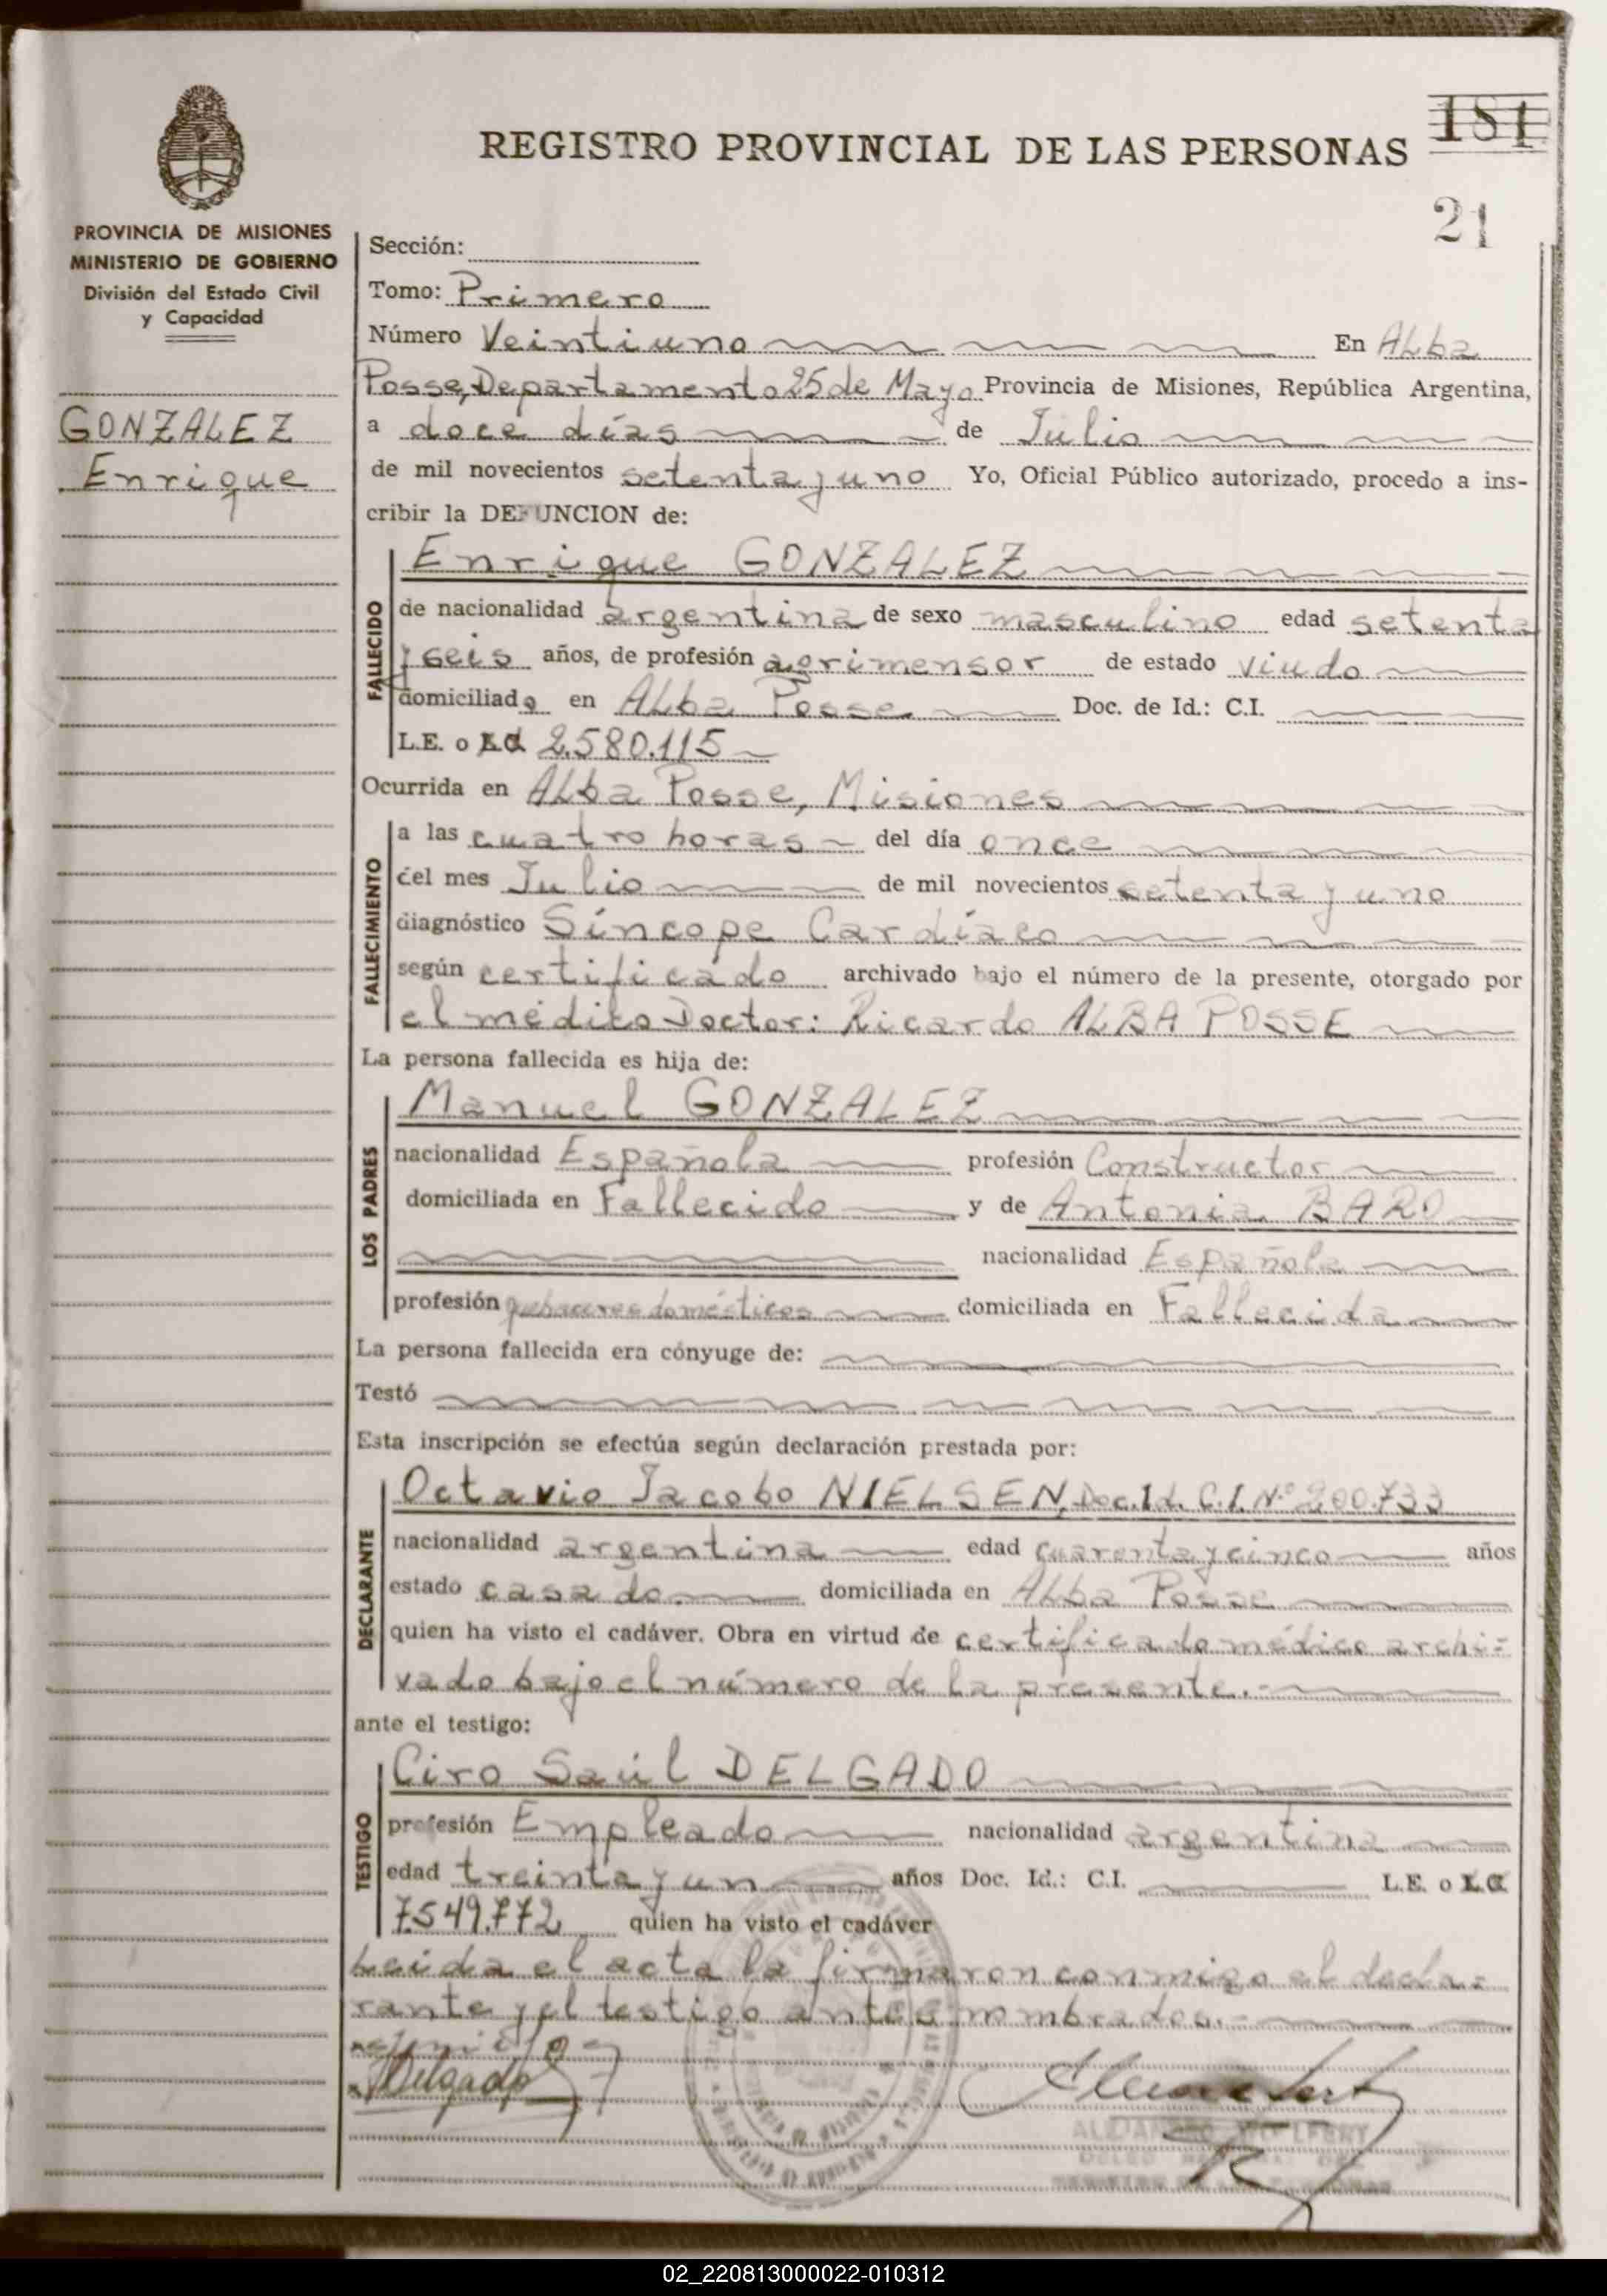 REGISTRO PROVINCIAL DE LAS PERSONAS
181
21
PROVINCIA DE MISIONES
MINISTERIO DE GOBIERNO
División del Estado Civil
y Capacidad
GONZALEZ
Enrique
Sección:
Tomo: Primero
Número Veintiuno En Alba
Posse, Departamento 25 de Mayo Provincia de Misiones, República Argentina,
a doce días de Julio
de mil novecientos setenta y uno Yo, Oficial Público autorizado, procedo a ins-
cribir la DEFUNCION de:
FALLECIDO
Enrique GONZALEZ
de nacionalidad argentina de sexo masculino edad setenta
y seis años, de profesión agrimensor de estado viudo
domiciliado en Alba Posse Doc. de Id.: C.I.
L.E. o L.C. 2.580.115
Ocurrida en Alba Posse, Misiones
FALLECIMIENTO
a las cuatro horas del día once
del mes Julio de mil novecientos setenta y uno
diagnóstico Síncope Cardíaco
según certificado archivado bajo el número de la presente, otorgado por
el médico Doctor: Ricardo ALBA POSSE
La persona fallecida es hija de:
LOS PADRES
Manuel GONZALEZ
nacionalidad Española profesión Constructor
domiciliada en Fallecido y de Antonia BARO
nacionalidad Española
profesión quehaceres domésticos domiciliada en Fallecida
La persona fallecida era cónyuge de:
Testó
Esta inscripción se efectúa según declaración prestada por:
DECLARANTE
Octavio Jacobo NIELSEN, Doc. Id. C.I. Nº 200.733
nacionalidad argentina edad cuarenta y cinco años
estado casado domiciliada en Alba Posse
quien ha visto el cadáver. Obra en virtud de certificado médico archi-
vado bajo el número de la presente.-
ante el testigo:
TESTIGO
Ciro Saúl DELGADO
profesión Empleado nacionalidad argentina
edad treinta y un años Doc. Id.: C.I. L.E. o L.C.
7.549.772 quien ha visto el cadáver
Leída el acta la firmaron conmigo el decla-
rante y el testigo antes nombrados.-
Delgado
02_220813000022-010312